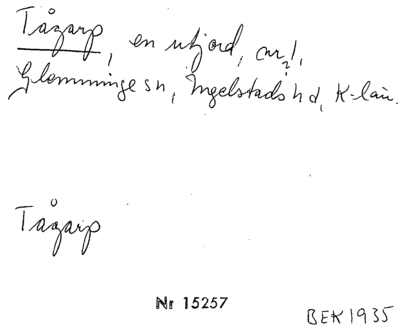 Tågarp, en utjord, cnr 2/,
Glemminge sn, Ingelstads hd, K-län.
Tågarp
Nr 15257
BEK 1935